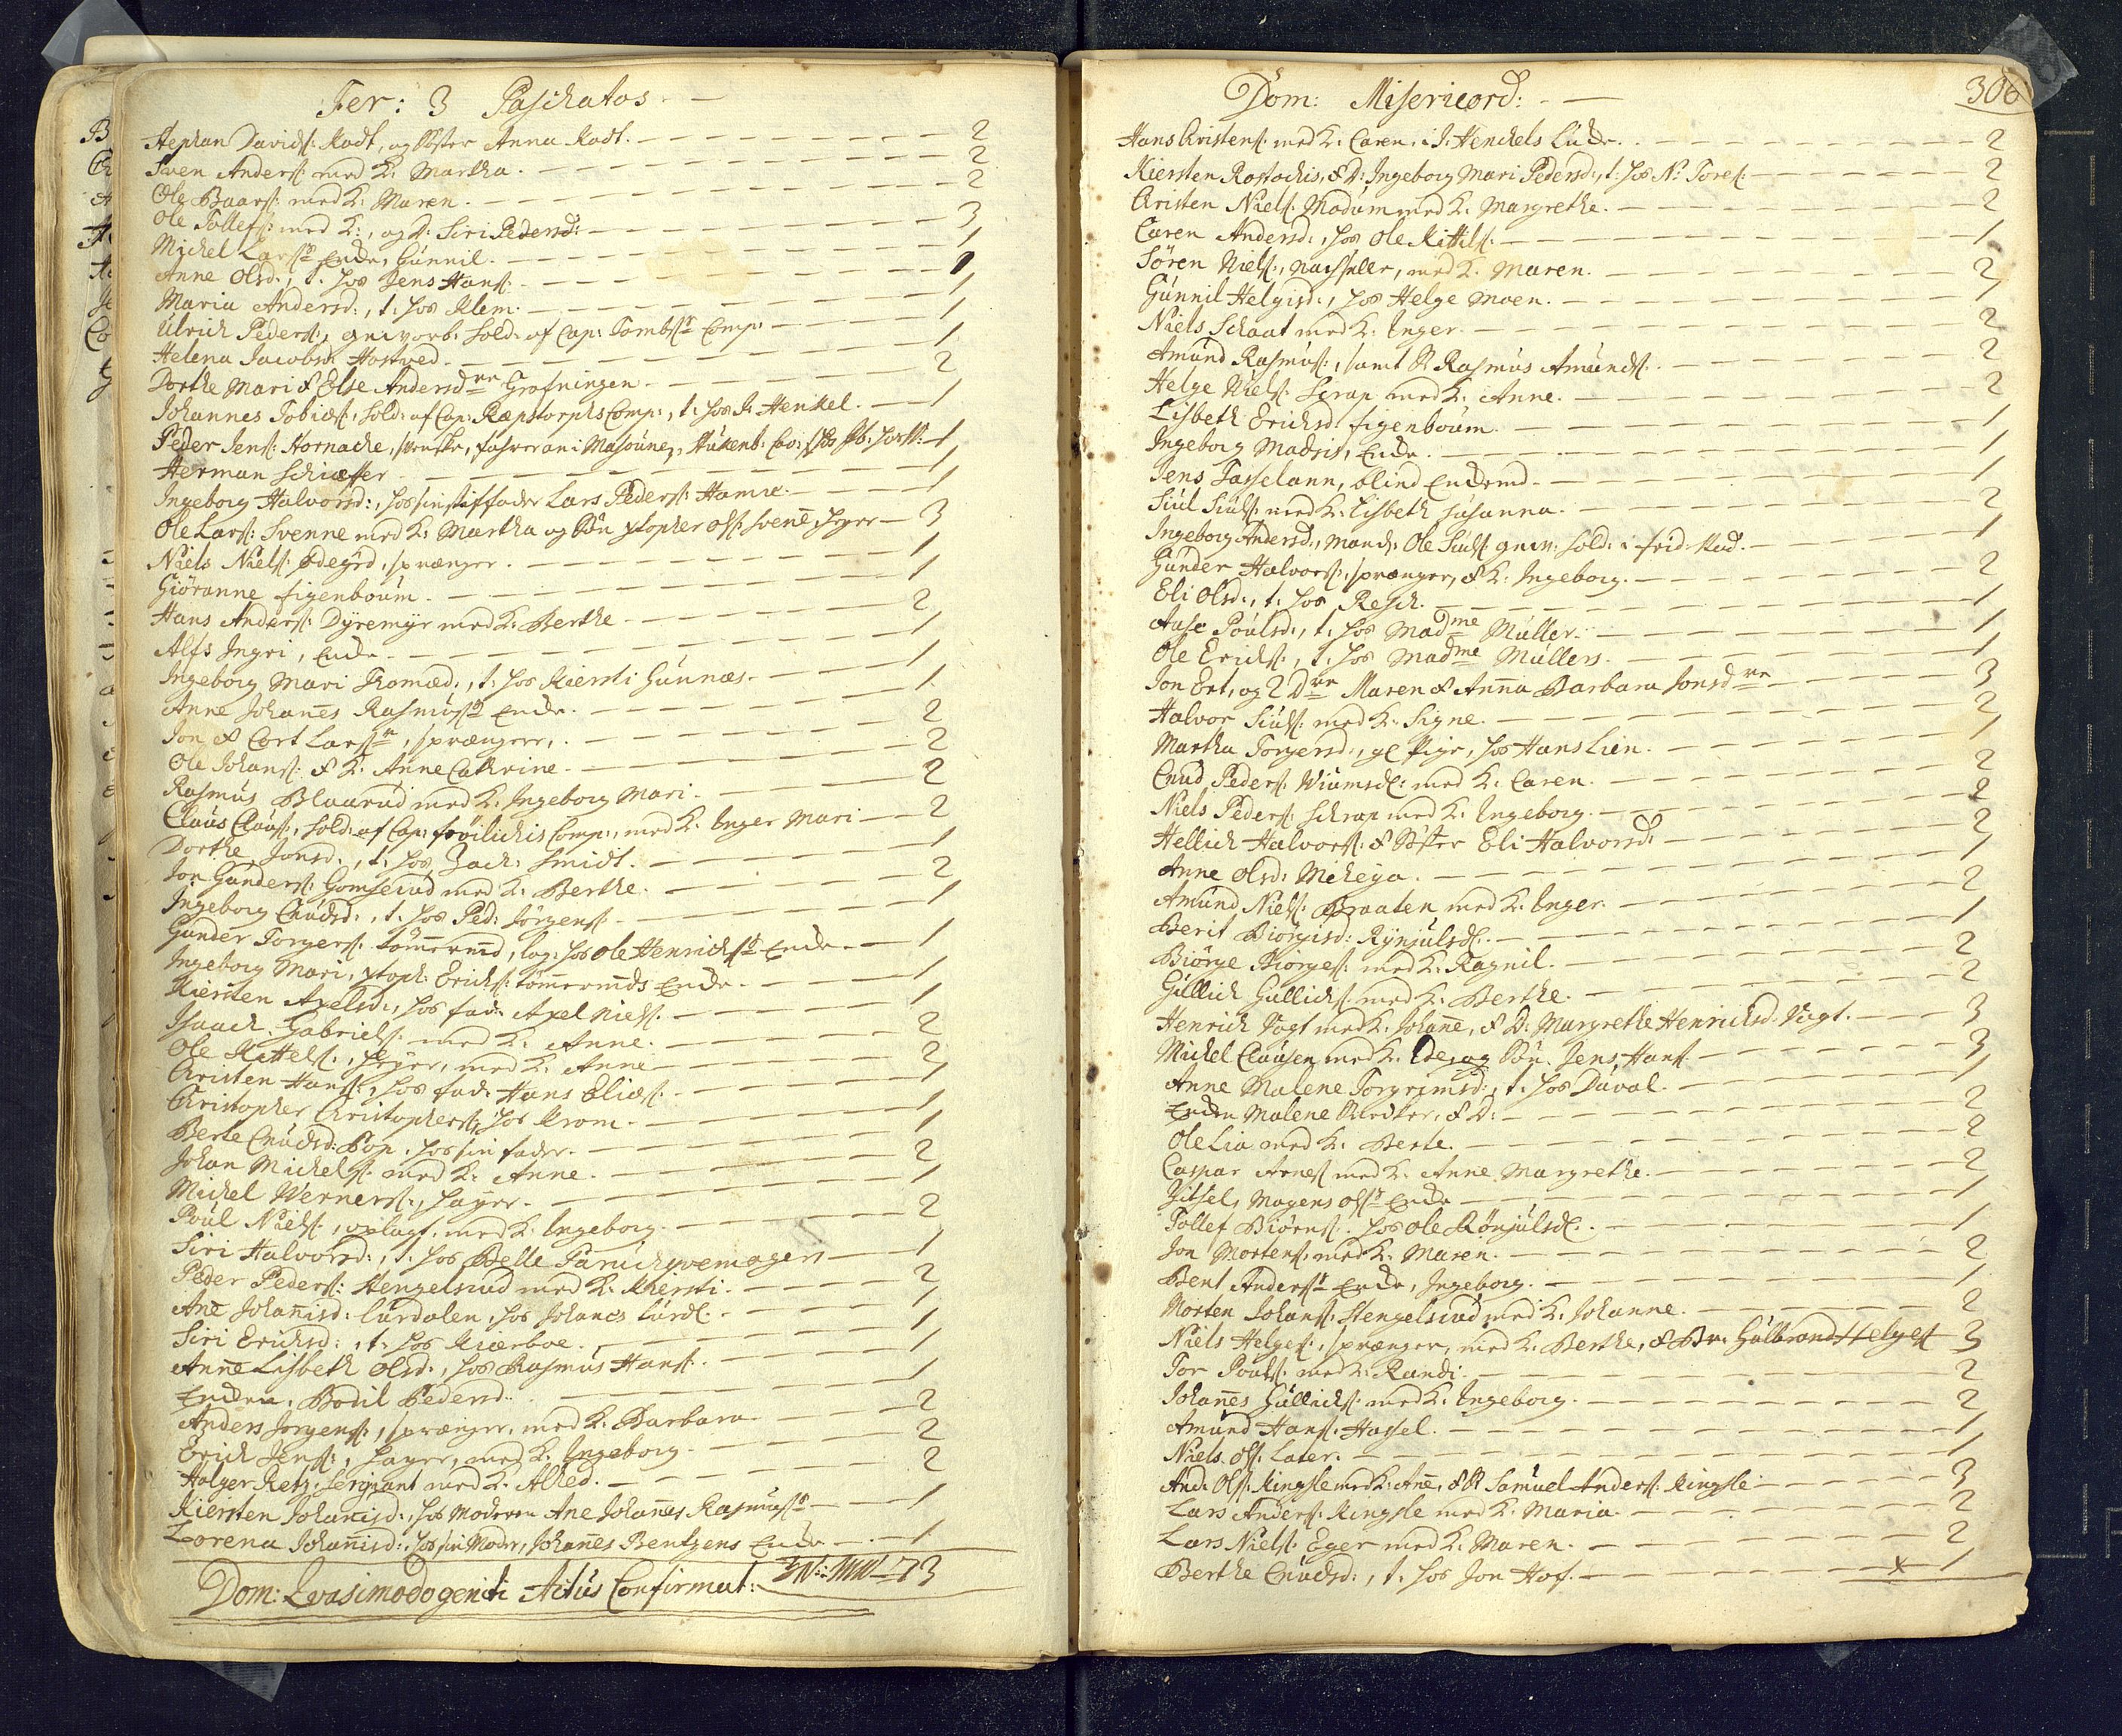 Fer: 3 Paschatos
Stephan Davids: Rodt, og Søster Anna Rodt. 2
Sven Anders: med K: Martha. 2
Ole Baars: med K: Maren. 2
Ole Tollefs: med K:, og D: Siri Pedersd: 3
Michel Larss Enke, Gunnil. 1
Anne Olsd:, t: hos Jens Hans: 1
Maria Andersd:, t: hos Klem. 1
Ulrich Peders:, gevorb: Sold: af Cap: Comp: 1
Helena Jacobsd: Hostved. 1
Dorthe Mari & Else Andersdre Grofningen. 2
Johannes Tobias:, Sold: af Cap: Ræpstorphs Comp:, t: hos J: Henkel. 1
Peder Jens: Hornache, 1
Herman Schiæffer 1
Ingeborg Halvorsd:, hos sin stiffader Lars Peders: Hamre. 1
Ole Lars: Svenne med K: Martha og Søn Xtopher Ols: Svene, 3
Niels Niels: Ødegrd, sprænger. 1
Giöranne figenboum. 1
Hans Anders: Dyremyr med K: Berthe. 2
Alfs Ingri, Enke. 1
Ingeborg Mari Thomæd:, t: hos Kiersti Gunnæs. 1
Anne Johanes Rasmuss Enke. 1
Jon & Cort Larssr, sprænger, 2
Ole Johans: & K: Anne Cathrine. 2
Rasmus Blaarud med K: Ingeborg Mari. 2
Claus Claus:, Sold: af Cap: frölichis Comp:, med K: Inger Mari 2
Dorthe Jonsd:, t: hos Zach: Smidt. 1
Jon Gunders: Gomserud med K: Berthe. 2
Ingeborg Cnudsd:, t: hos Ped: Jörgens: 1
Gunder Torgers: tömermd, log: hos Ole Henrichs Enke. 1
Ingeborg Mari, Xtoph: Erichs: tömermds Enke. 1
Kiersten Axelsd:, hos fad: Axel Niels: 1
Isaach Gabriels: med K: Anne. 2
Ole Kittels:, med K: Anne 2
Christen Hans:, hos fad: Hans Elias: 1
Christopher Christophers:, hos Krom. 1
Berte Cnudsd: Pop. hos sin fader. 1
Johan Michels: med K: Anne. 2
Michel Werners:, hayer. 1
Poul Niels:, oplagt, med K: Ingeborg. 2
Siri Halvorsd:, t: hos Belle Paruchvemagers 1
Peder Peders: Stengelsrud med K: Kiersti. 2
Ane Johanisd: Lurdalen, hos Johanes Lurd: 1
Siri Erichsd:, t: hos Kierboe. 1
Anne Lisbeth Olsd:, hos Rasmus Hans: 1
Enken, Bodil Pedersd: 1
Anders Jörgens:, sprænger, med K: Barbara 2
Erich Jens:, hayer, med K: Ingeborg. 2
Holger Retz, Sergiant med K: Alhed. 2
Kiersten Johanisd:, hos Moderen Ane Johanes Rasmuss 1
Lorena Johanisd:, hos sin Moder, Johanes Bentzens Enke 1
73
Dom: Qvasimodogeniti Actus Confirmat:
Dom: Misericord:
306
Hans Christens: med K: Caren, i J: Henckels Lude. 2
Kiersten Rostochis, & D: Ingeborg Mari Pedersd:, t: hos N: Tores: 2
Christen Niels: Modum med K: Margrethe. 2
Caren Andersd:, hos Ole Kittils: 1
Sören Niels:, med K: Maren. 2
Gunnil Helgisd:, hos Helge Moen. 1
Niels Schaat med K: Inger. 2
Amund Rasmus:, samt S: Rasmus Amunds: 2
Helge Niels: Scrap med K: Anne. 2
Lisbeth Erichsd: figenboum. 1
Ingeborg Madsis, Enke. 1
Jens Tasselann, blind Enkemd. 1
Siul Siuls: med K: Lisbeth Susanna. 2
Ingeborg Andersd:, Mand: Ole Siuls: gev: Sold: i fridstad. 1
Gunder Halvors:, sprænger, & K: Ingeborg. 2
Eli Olsd:, t: hos Resch. 1
Aase Poulsd:, t: hos Madme Müller. 1
Ole Erichs:, t: hos Madme Müllers. 1
Jon Ert, og 2 Dre Maren & Anna Barbara Jonsdre 3
Halvor Siuls: med K: Signe. 2
Martha Torgersd:, gl: Pige, hos Hans Lien. 1
Cnud Peders: Wiumsd: med K: Caren. 2
Niels Peders: Schrap med K: Ingeborg. 2
Hellich Halvors: & Söster Eli Halvorsd: 2
Anne Olsd: Meheya. 1
Amund Niels: Braaten med K: Inger. 2
Berit Biörgisd: Rynjulsd: 1
Biörge Biörges: med K: Ragnil. 2
Gullich Gullichs: med K: Berthe. 2
Henrich Vogt med K: Johane, & D: Margrethe Henrichsd: Vogt. 3
Michel Clausen med K: Ede, og Sön Jens Hans: 3
Anne Malene Torgrimsd:, t: hos Duval. 1
Enken Malene & D: 2
Ole Lia med K: Berte. 2
Caspar Arnes: med K: Anne Margrethe. 2
Sitsel, Mogens Ols Enke 1
Tollef Biörns: hos Ole Rönjulsd: 1
Jon Mortens: med K: Maren. 2
Bent Anderss Enke, Ingeborg. 1
Morten Johans: Stengelsrud med K: Johanne. 2
Niels Helges:, sprænger, med K: Berthe, & Br: Gulbrand Helges: 3
Tor Pouls: med K: Randi. 2
Johanes Gullichs: med K: Ingeborg. 2
Amund Hans: Hassel. 1
Niels Ols: Later. 1
And: Ols: Kingsle med K: Ane, & S: Samuel Anders: Kingsle 3
Lars Anders: Kingsle med K: Maria. 2
Lars Niels: Eger med K: Maren. 2
Berthe Cnudsd:, t: hos Jon Hof. x 1